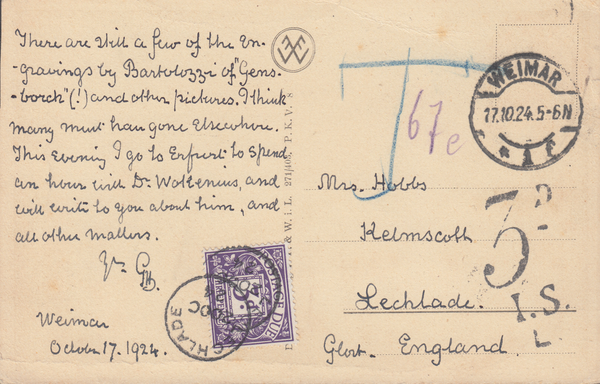 There are still a few of the En-
gravings by Bartolozzi of "Gens-
borch" (!) and other pictures. I think
many must have gone Elsewhere.
This Evening I go to Erfurt to spend
an hour with Dr. Wollenius, and
will write to you about him, and
all other matters.
Yr. GH.
Weimar
October 17. 1924.
P.K.V. 8
W.i.L.
T
67 c
WEIMAR
17.10.24.5-6N
Mrs. Hobbs
Kelmscott
Lechlade.
Glost. England.
3D
I.S.
L
POSTAGE DUE
LECHLADE
OC